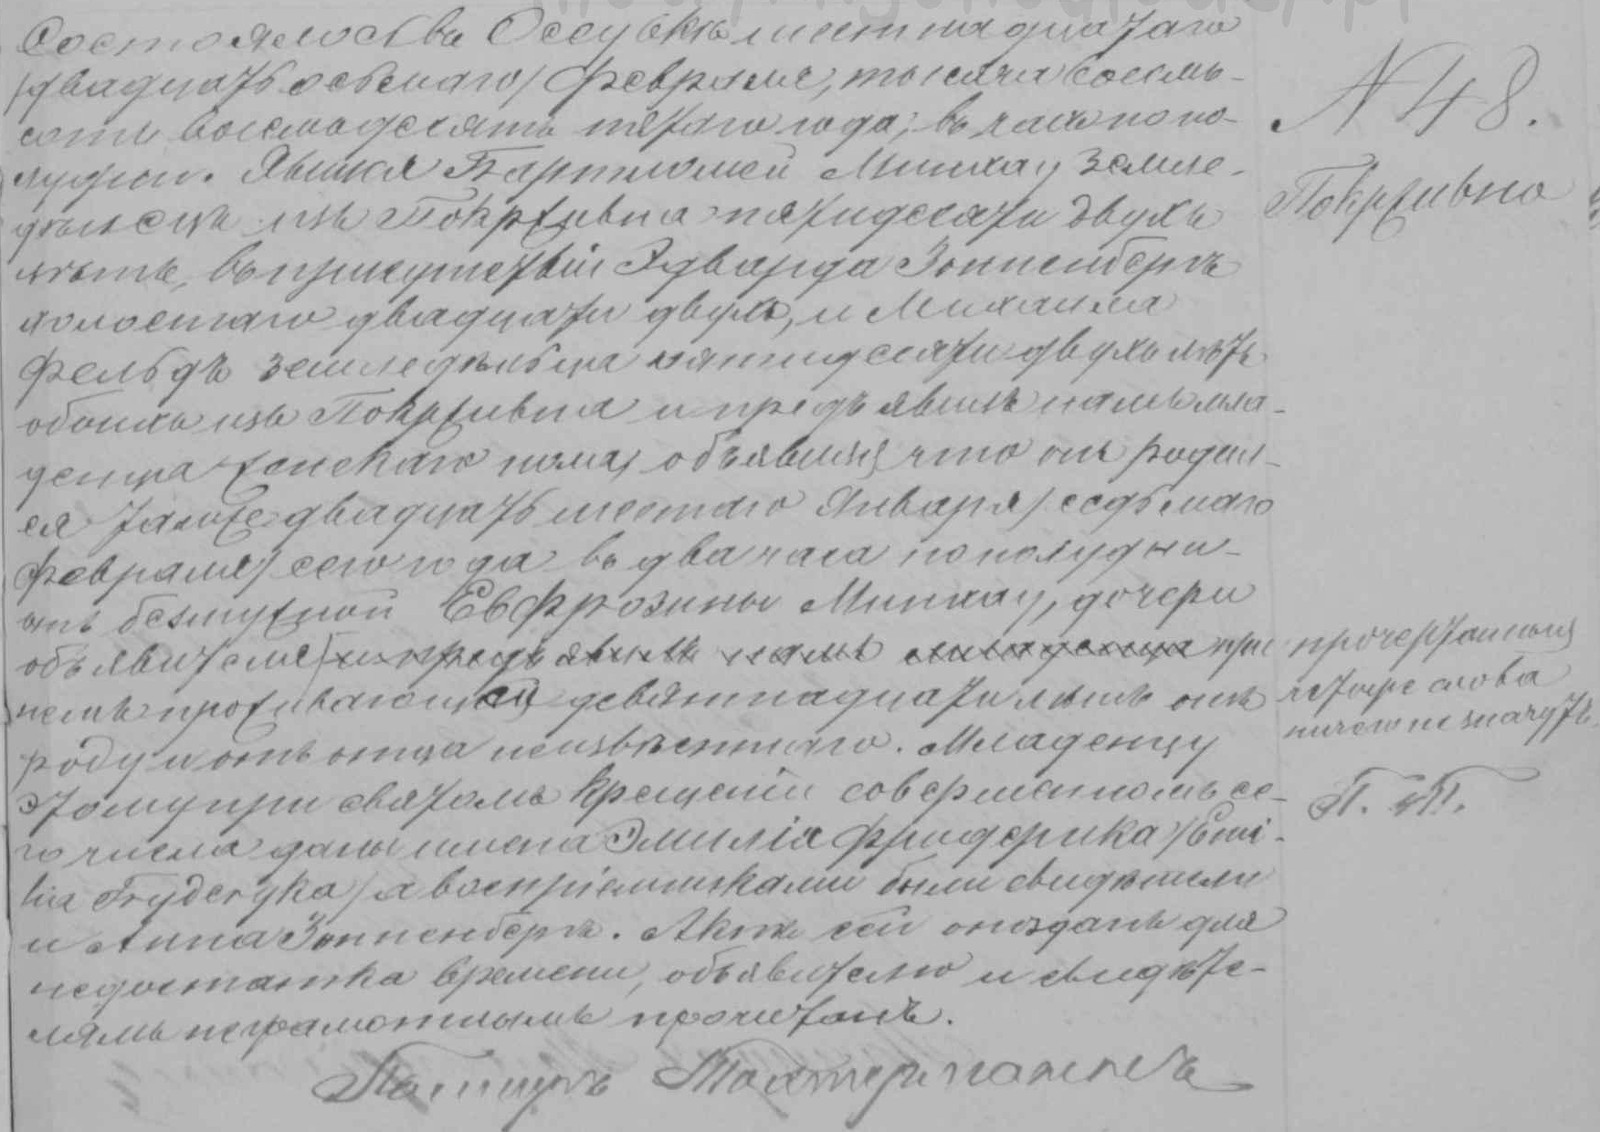 Состоялось Въ Оссувкѣ шестнадцатаго
/двадцать осьмаго/ Февраля, тысяча восемь-
сотъ восемьдесятъ пятаго года, въ часъ по по-
лудни. Явился Бартломей Минхау земле-
дѣлецъ изъ Покрживна пятидесяти двухъ
лѣтъ, въ присутствіи Эдварда Зонненбергъ
холостаго двадцати двухъ, и Михаила
Фельдъ земледѣльца пятидесяти двухъ лѣтъ
обоихъ изъ Покрживна и предъявилъ намъ мла-
денца женскаго пола, объявляя что онъ родил-
ся тамже двадцать шестаго Января/ седьмаго
Февраля/ сего года въ два часа по полудни
отъ безмужной Евфрозины Минхау, дочери
объявителя и предъявилъ намъ младенца при
немъ проживающей девятнадцати лѣтъ отъ
роду и отъ отца неизвѣстнаго. Младенцу
этому при святомъ крещеніи совершенномъ се-
го числа даны имена Эмилія Фридерика /Emi-
lia Fryderyka/ а воспріемниками были свидѣтели
и Анна Зонненбергъ. Актъ сей опозданъ для
недостатка времени, объявителю и свидѣте-
лямъ неграмотнымъ прочитанъ.
Пасторъ
N 48.
Покрживно
прочертанныя
четыре слова
ничего не значутъ
П. П.